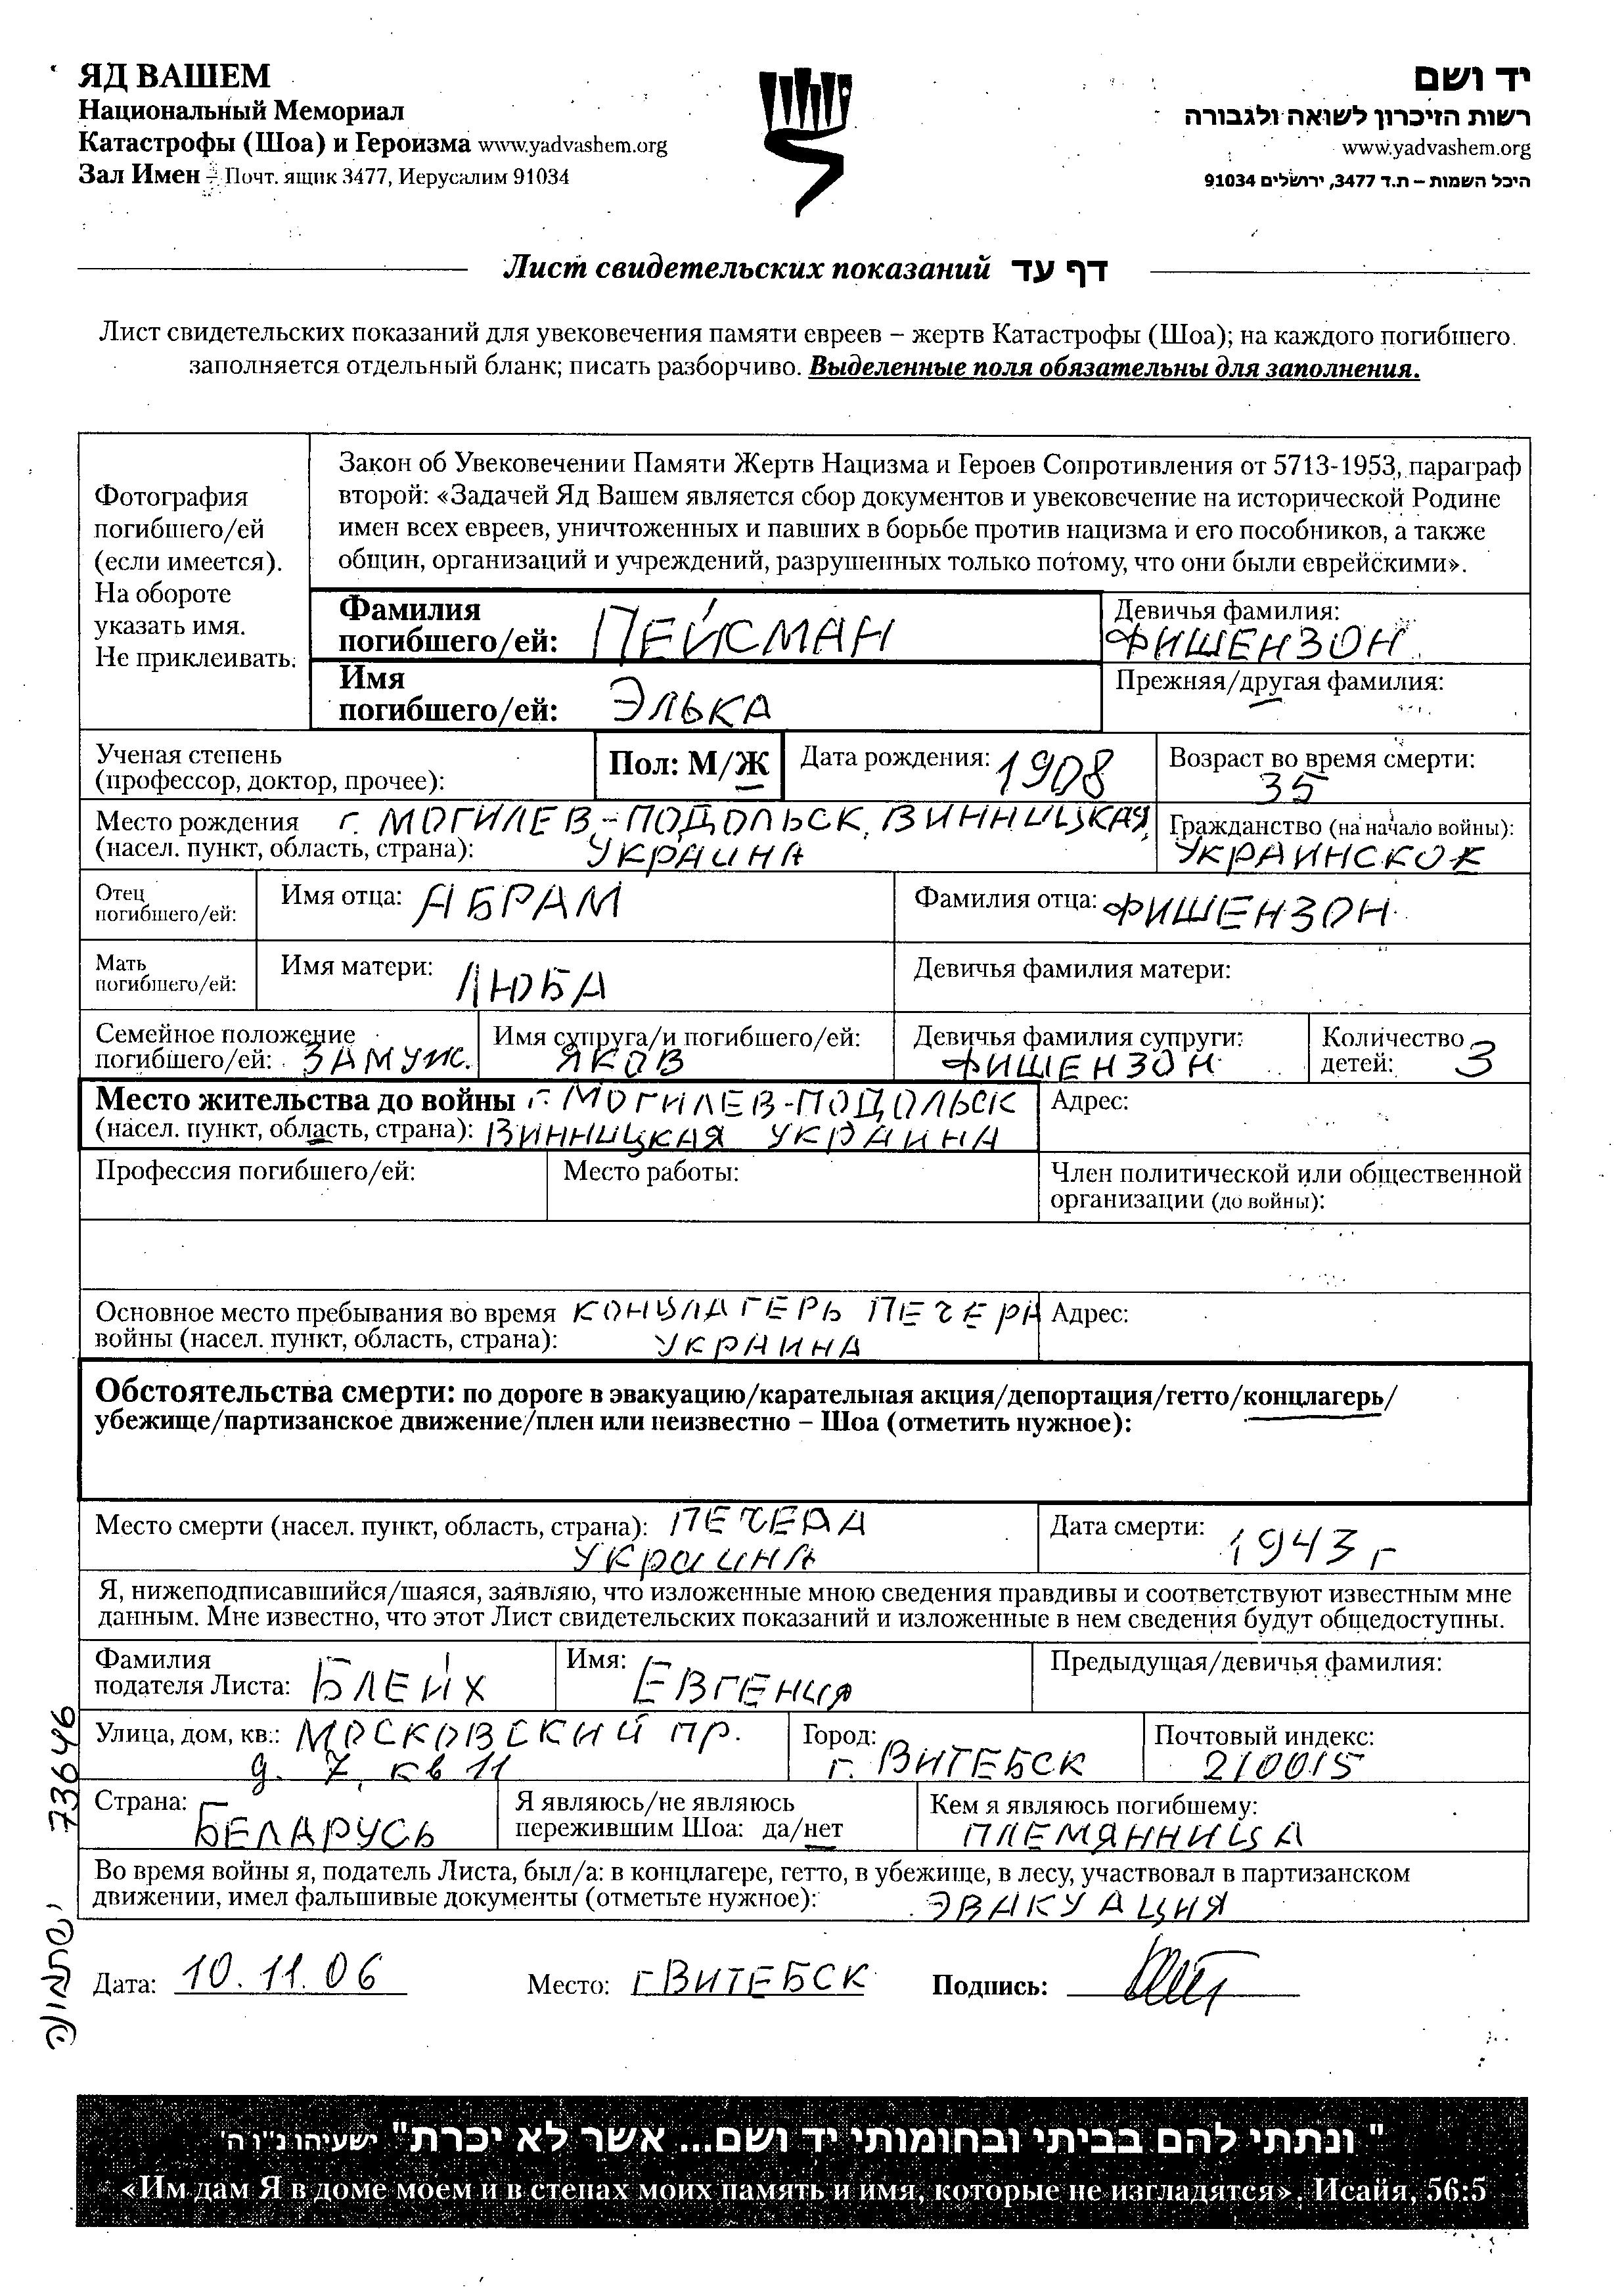 ЯД ВАШЕМ
Национальный Мемориал
Катастрофы (Шоа) и Героизма www.yadvashem.org
Зал Имен – Почт. ящик 3477, Иерусалим 91034
יד ושם
רשות הזיכרון לשואה ולגבורה
www.yadvashem.org
היכל השמות – ת.ד 3477, ירושלים 91034
Лист свидетельских показаний דף עד
Лист свидетельских показаний для увековечения памяти евреев – жертв Катастрофы (Шоа); на каждого погибшего
заполняется отдельный бланк; писать разборчиво. Выделенные поля обязательны для заполнения.
Фотография
погибшего/ей
(если имеется).
На обороте
указать имя.
Не приклеивать.
Закон об Увековечении Памяти Жертв Нацизма и Героев Сопротивления от 5713-1953, параграф
второй: «Задачей Яд Вашем является сбор документов и увековечение на исторической Родине
имен всех евреев, уничтоженных и павших в борьбе против нацизма и его пособников, а также
общин, организаций и учреждений, разрушенных только потому, что они были еврейскими».
Фамилия
погибшего/ей: ПЕЙСМАН
Девичья фамилия:
ФИШЕНЗОН
Имя
погибшего/ей: ЭЛЬКА
Прежняя/другая фамилия:
Ученая степень
(профессор, доктор, прочее):
Пол: М/Ж
Дата рождения: 1908
Возраст во время смерти:
35
Место рождения г. МОГИЛЕВ-ПОДОЛЬСК, ВИННИЦКАЯ,
(насел. пункт, область, страна): УКРАИНА
Гражданство (на начало войны):
УКРАИНСКОЕ
Отец
погибшего/ей:
Имя отца: АБРАМ
Фамилия отца: ФИШЕНЗОН
Мать
погибшего/ей:
Имя матери: ЛЮБА
Девичья фамилия матери:
Семейное положение
погибшего/ей: ЗАМУЖ.
Имя супруга/и погибшего/ей:
ЯКОВ
Девичья фамилия супруги:
ФИШЕНЗОН
Количество
детей: 3
Место жительства до войны г. МОГИЛЕВ-ПОДОЛЬСК
(насел. пункт, область, страна): ВИННИЦКАЯ УКРАИНА
Адрес:
Профессия погибшего/ей:
Место работы:
Член политической или общественной
организации (до войны):
Основное место пребывания во время КОНЦЛАГЕРЬ ПЕЧЕРА
войны (насел. пункт, область, страна): УКРАИНА
Адрес:
Обстоятельства смерти: по дороге в эвакуацию/карательная акция/депортация/гетто/концлагерь/
убежище/партизанское движение/плен или неизвестно – Шоа (отметить нужное):
Место смерти (насел. пункт, область, страна): ПЕЧЕРА
УКРАИНА
Дата смерти: 1943 г
Я, нижеподписавшийся/шаяся, заявляю, что изложенные мною сведения правдивы и соответствуют известным мне
данным. Мне известно, что этот Лист свидетельских показаний и изложенные в нем сведения будут общедоступны.
Фамилия
подателя Листа: БЛЕЙХ
Имя: ЕВГЕНИЯ
Предыдущая/девичья фамилия:
Улица, дом, кв.: МОСКОВСКИЙ пр.
д. 7, кв 11
Город:
г. ВИТЕБСК
Почтовый индекс:
210015
Страна:
БЕЛАРУСЬ
Я являюсь/не являюсь
пережившим Шоа: да/нет
Кем я являюсь погибшему:
ПЛЕМЯННИЦА
Во время войны я, податель Листа, был/а: в концлагере, гетто, в убежище, в лесу, участвовал в партизанском
движении, имел фальшивые документы (отметьте нужное): ЭВАКУАЦИЯ
Дата: 10.11.06
Место: г ВИТЕБСК
Подпись:
73646
" ונתתי להם בביתי ובחומותי יד ושם... אשר לא יכרת" ישעיהו נ"ו ה'
«Им дам Я в доме моем и в стенах моих память и имя, которые не изгладятся». Исайя, 56:5